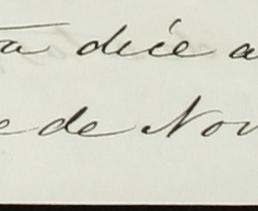 ta dice a
e de Nov